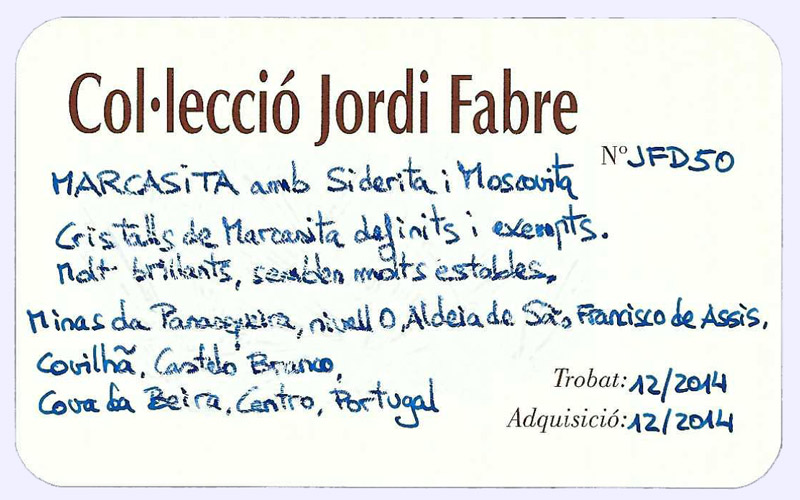 Col·lecció Jordi Fabre
Nº JFD50
MARCASITA amb Siderita i Moscovita
Cristalls de Marcasita definits i exempts.
Molt brillants, semblen molts estables.
Minas da Panasqueira, nivell 0, Aldeia de São Francisco de Assis,
Covilhã, Castelo Branco,
Cova da Beira, Centro, Portugal
Trobat: 12/2014
Adquisició: 12/2014